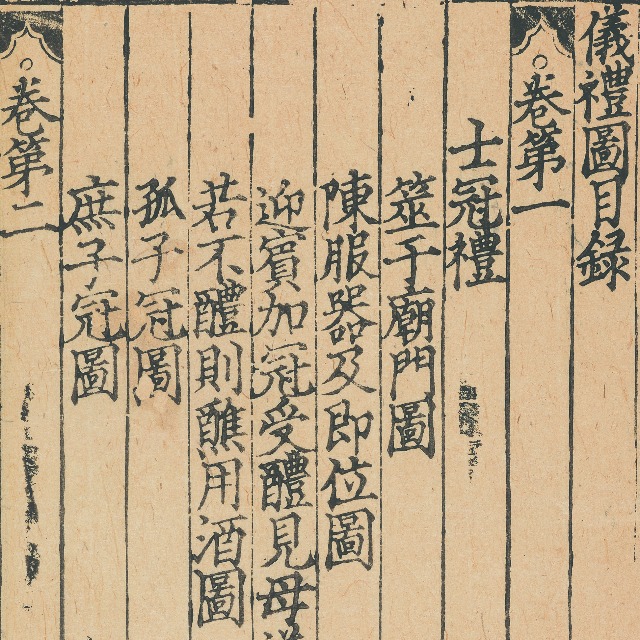 儀禮圖目録
卷第一
士冠禮
筮于廟門圖
陳服器及即位圖
迎賓加冠受醴見母
若不醴則醮用酒圖
孤子冠圖
庶子冠圖
卷第二